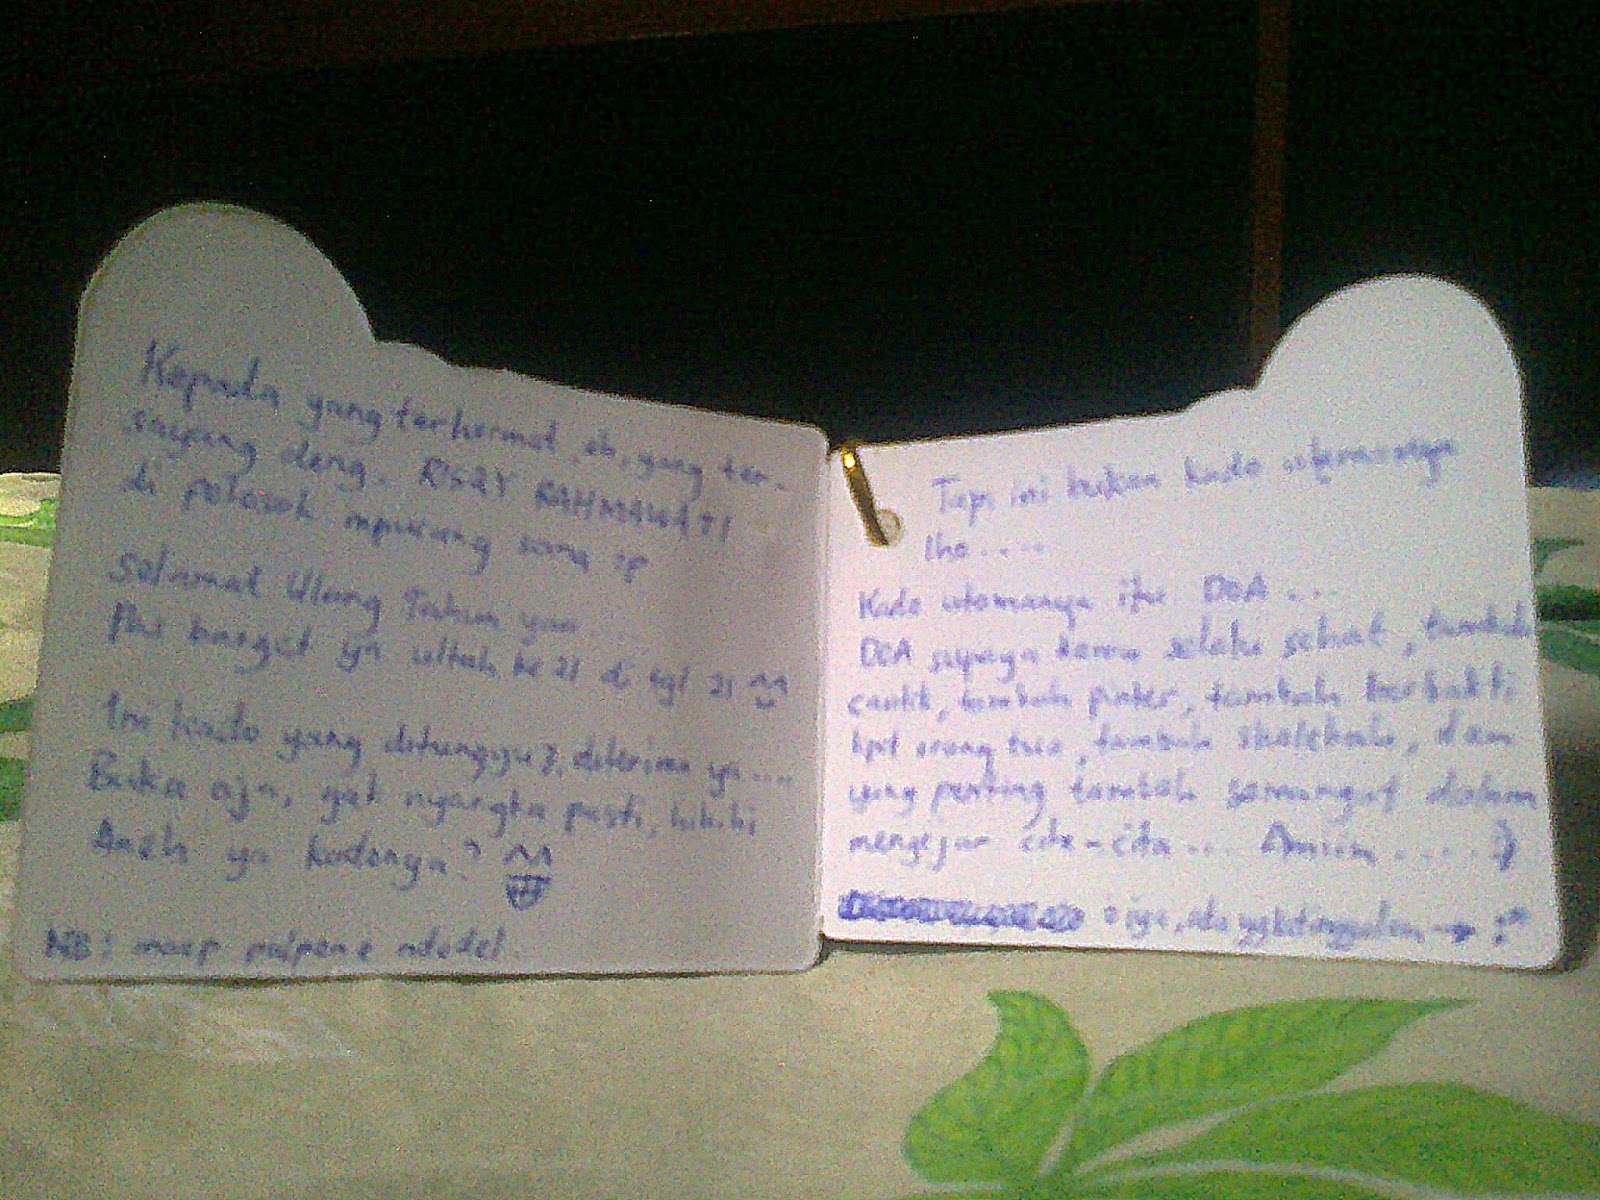 Kepada yang terhormat eh, yang ter-
sayang deng. RAHMAWATI
di pelosok sana :p
Selamat Ulang Tahun yaa....
Pas banget ya ultah ke 21 di tgl 21
Ini kado yang ditunggu2, diterima ya....
Buka aja, gak nyangka pasti, hihihi
Aneh ya kadonya?
NB: maap pulpene ndedel
Tapi ini bukan kado utamanya
lho.....
Kado utamanya itu DOA ....
DOA supaya kamu selalu sehat, tambah
cantik, tambah pinter, tambah berbakti
kpd orang tua, tambah sholehah, dan
yang penting tambah semangat dalam
mengejar cita-cita ... Amiin ..... :)
O iya, ada yg ketinggalan → :*